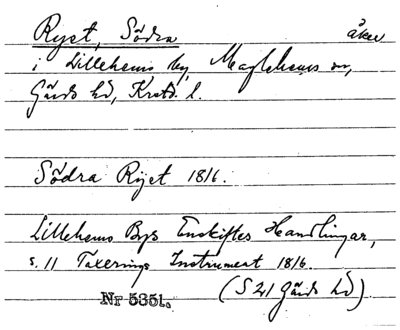 Ryet, Södra åker
i Lillehems by, Maglehems sn,
Gärds hd, Krstd. l.
Södra Ryet 1816.
Lillehems Bys Enskiftes Handlingar,
s. 11 Taxerings Instrument 1816.
(S 21 Gärds hd)
Nr 5351.